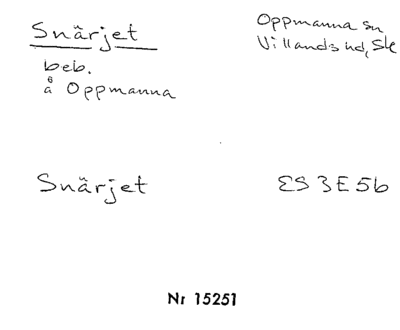 Snärjet
Oppmanna sn
Villands hd, Sk
beb.
å Oppmanna
Snärjet
ES 3E5b
Nr 15251